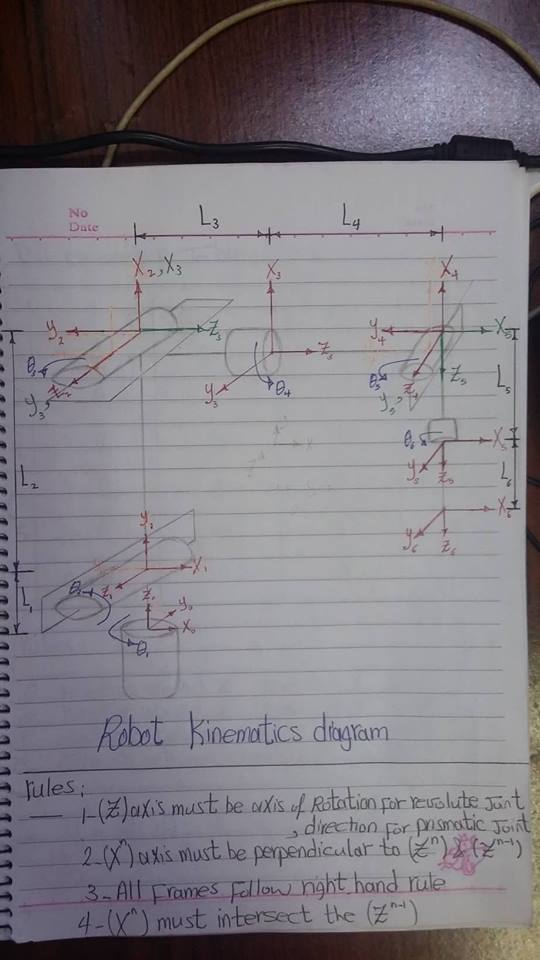 No
Date
L3 L4
X2, X3 X3 X4
y2 Z3 Z3 y4 X5
θ3 θ4 θ5 Z5 L5
y3, Z2 y3 y5, Z4
θ6 X5
L2 y5 Z5 L6
y1 X6
X1 y6 Z6
L1 θ2 Z1
Z0 y0
X0
θ1
Robot Kinematics diagram
rules:
1-(Z) axis must be axis of Rotation for revolute Joint
, direction for prismatic Joint
2-(Xⁿ) axis must be perpendicular to (Zⁿ) & (Zⁿ⁻¹)
3-All Frames Follow right hand rule
4-(Xⁿ) must intersect the (Zⁿ⁻¹)